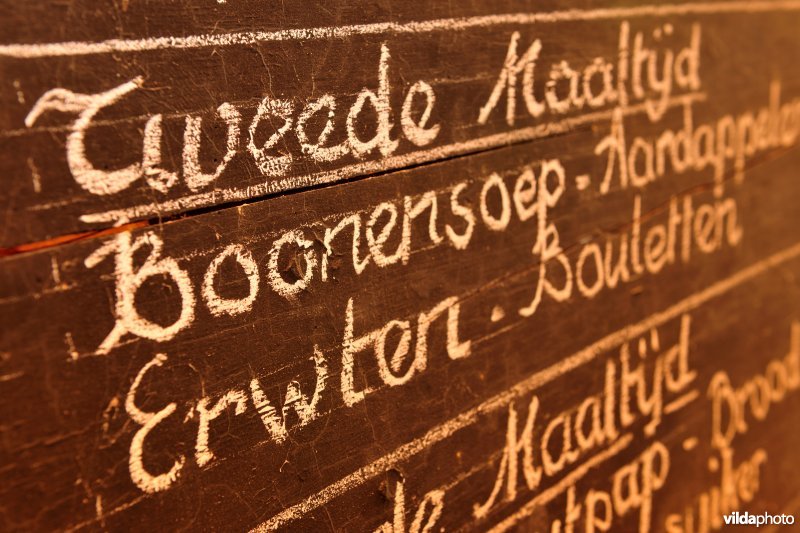 Tweede Maaltijd
Boonensoep - Aardappelen
Erwten - Bouletten
de Maaltijd
tpap - Brood
suiker
vildaphoto